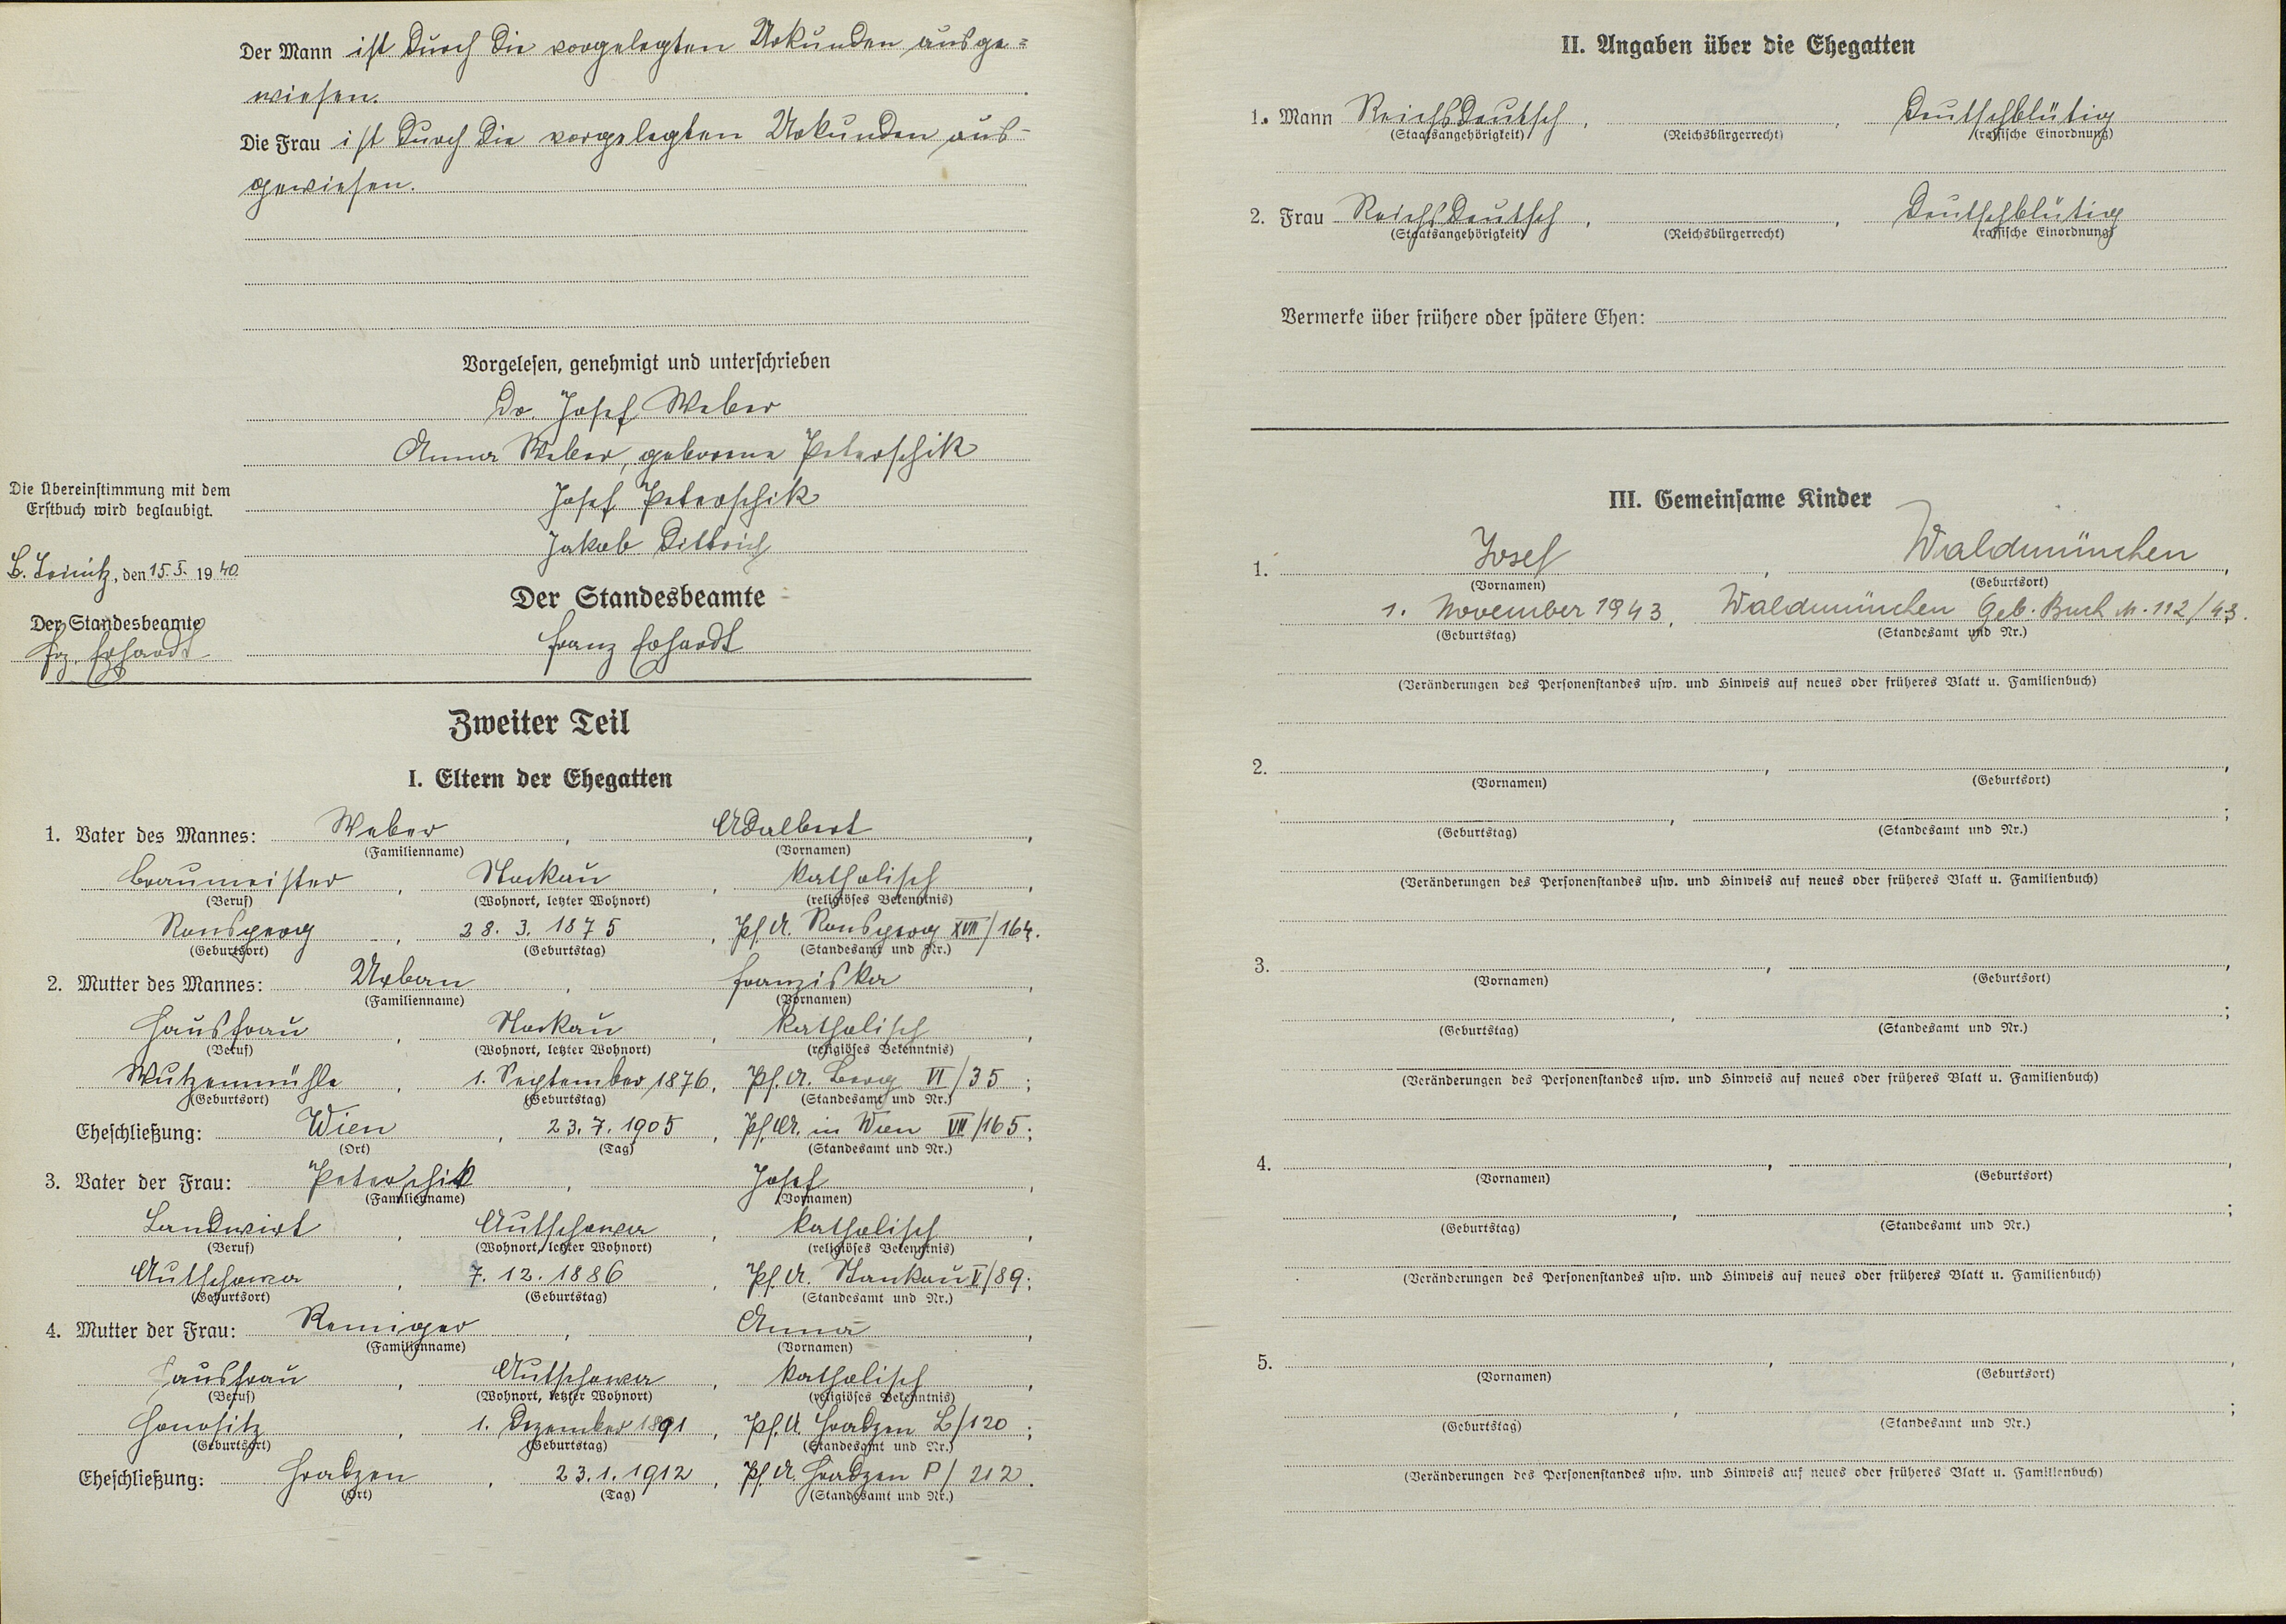 Der Mann ist durch die vorgelegten Urkunden ausge=
wiesen.
Die Frau ist durch die vorgelegten Urkunden aus-
gewiesen.
Vorgelesen, genehmigt und unterschrieben
Dr. Josef Weber
Anna Weber, geborene Peterschik
Josef Peterschik
Jakob Dittrich
Die Übereinstimmung mit dem
Erstbuch wird beglaubigt.
den 15. 5. 1940
Der Standesbeamte
Frz. Erhardt
Der Standesbeamte
Franz Erhardt
Zweiter Teil
I. Eltern der Ehegatten
1. Vater des Mannes: Weber, Adalbert,
(Familienname) (Vornamen)
Braumeister, Stockau, katholisch,
(Beruf) (Wohnort, letzter Wohnort) (religiöses Bekenntnis)
Ronsperg, 28. 3. 1875, Pf. A. Ronsperg XVII/164.
(Geburtsort) (Geburtstag) (Standesamt und Nr.)
2. Mutter des Mannes: Urban, Franziska,
(Familienname) (Vornamen)
Hausfrau, Stockau, katholisch,
(Beruf) (Wohnort, letzter Wohnort) (religiöses Bekenntnis)
Wutzenmühle, 1. September 1876, Pf. A. Berg VI/35;
(Geburtsort) (Geburtstag) (Standesamt und Nr.)
Eheschließung: Wien, 23. 7. 1905, Pf. A. in Wien VII/165;
(Ort) (Tag) (Standesamt und Nr.)
3. Vater der Frau: Peterschik, Josef,
(Familienname) (Vornamen)
Landwirt, Autschowa, katholisch,
(Beruf) (Wohnort, letzter Wohnort) (religiöses Bekenntnis)
Autschowa, 7. 12. 1886, Pf. A. Stankau V/89;
(Geburtsort) (Geburtstag) (Standesamt und Nr.)
4. Mutter der Frau: Remiger, Anna,
(Familienname) (Vornamen)
Hausfrau, Autschowa, katholisch,
(Beruf) (Wohnort, letzter Wohnort) (religiöses Bekenntnis)
Honositz, 1. Dezember 1891, Pf. A. Hradzen L/120;
(Geburtsort) (Geburtstag) (Standesamt und Nr.)
Eheschließung: Hradzen, 23. 1. 1912, Pf. A. Hradzen P/212.
(Ort) (Tag) (Standesamt und Nr.)
II. Angaben über die Ehegatten
1. Mann Reichsdeutsch, , Deutschblütig
(Staatsangehörigkeit) (Reichsbürgerrecht) (rassische Einordnung)
2. Frau Reichsdeutsch, , Deutschblütig
(Staatsangehörigkeit) (Reichsbürgerrecht) (rassische Einordnung)
Vermerke über frühere oder spätere Ehen:
III. Gemeinsame Kinder
1. Josef, Waldmünchen,
(Vornamen) (Geburtsort)
1. November 1943, Waldmünchen Geb. Buch N. 112/43.
(Geburtstag) (Standesamt und Nr.)
(Veränderungen des Personenstandes usw. und Hinweis auf neues oder früheres Blatt u. Familienbuch)
2. , ,
(Vornamen) (Geburtsort)
, ;
(Geburtstag) (Standesamt und Nr.)
(Veränderungen des Personenstandes usw. und Hinweis auf neues oder früheres Blatt u. Familienbuch)
3. , ,
(Vornamen) (Geburtsort)
, ;
(Geburtstag) (Standesamt und Nr.)
(Veränderungen des Personenstandes usw. und Hinweis auf neues oder früheres Blatt u. Familienbuch)
4. , ,
(Vornamen) (Geburtsort)
, ;
(Geburtstag) (Standesamt und Nr.)
(Veränderungen des Personenstandes usw. und Hinweis auf neues oder früheres Blatt u. Familienbuch)
5. , ,
(Vornamen) (Geburtsort)
, ;
(Geburtstag) (Standesamt und Nr.)
(Veränderungen des Personenstandes usw. und Hinweis auf neues oder früheres Blatt u. Familienbuch)